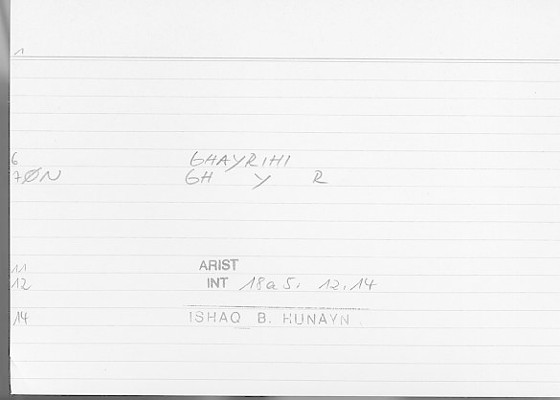 1
6 GHAYRIHI
7 ØN GH Y R
11 ARIST
12 INT 18a5. 12.14
14 ISHAQ B. HUNAYN